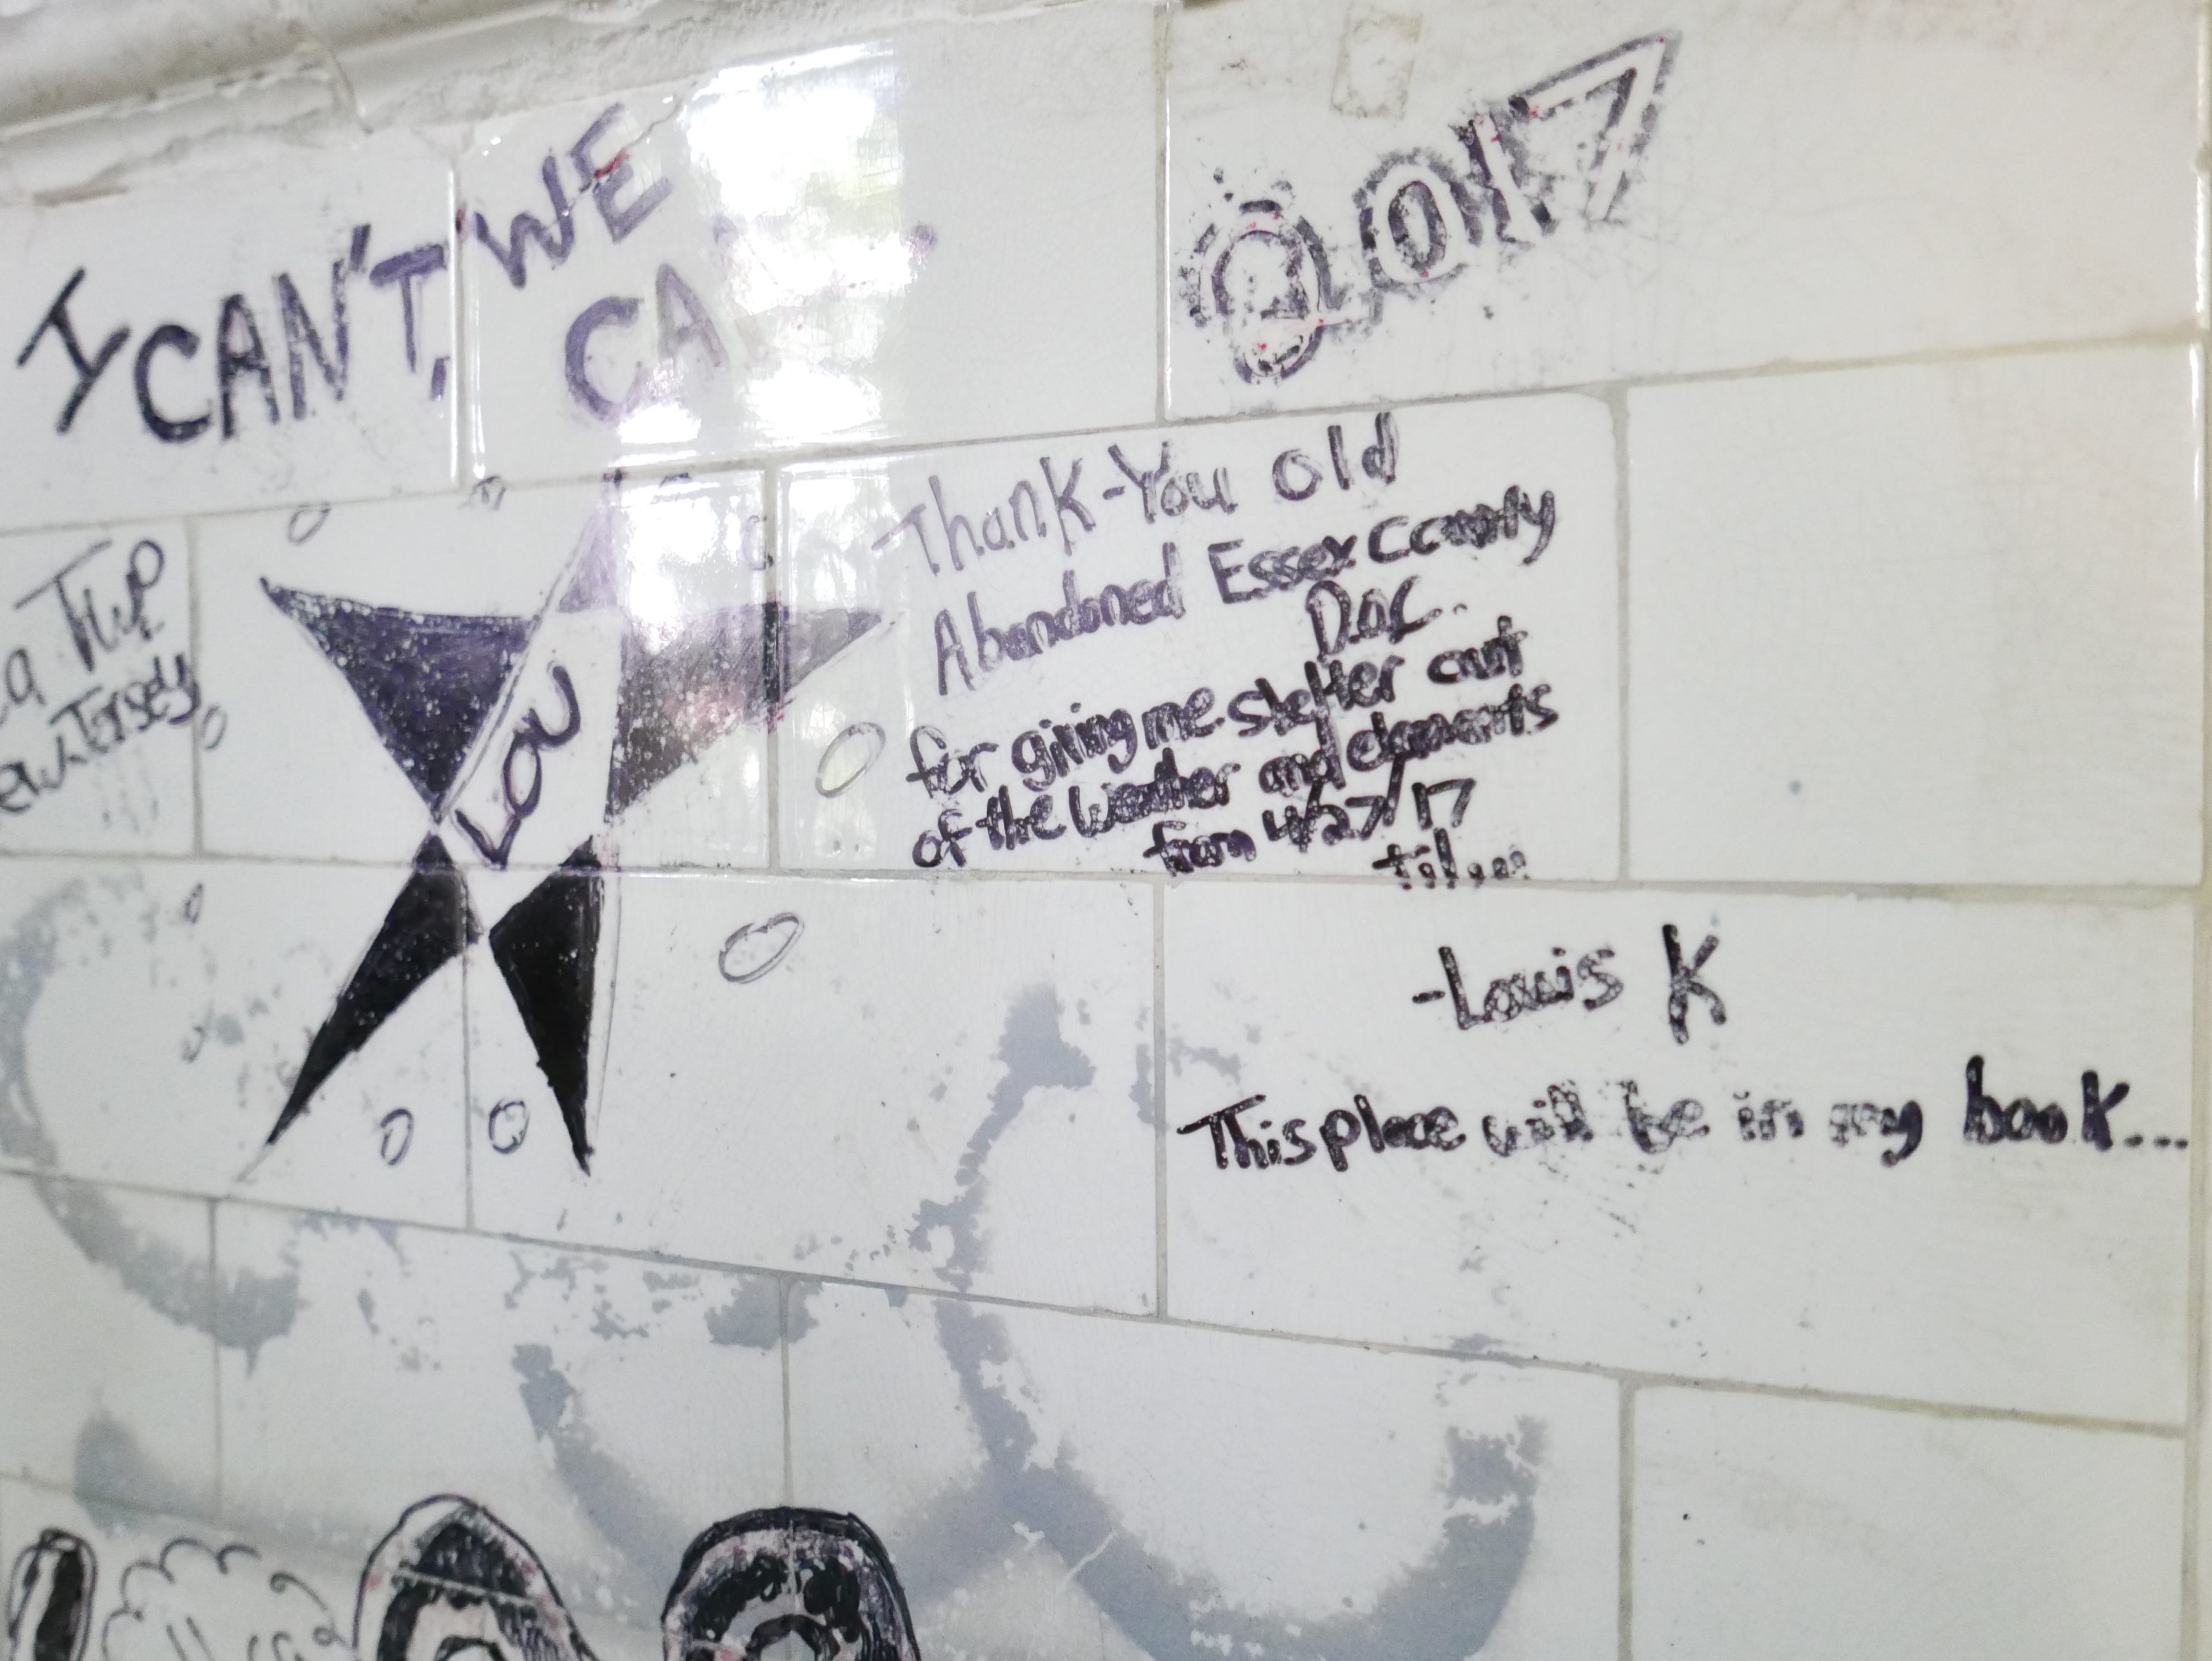 I CAN'T, WE
CA
2017
Thank-You Old
Abandoned Essex County
D.O.C..
for giving me shelter out
of the weather and elements
from 4/27/17
til...
-Louis K
This place will be in my book...
LOU